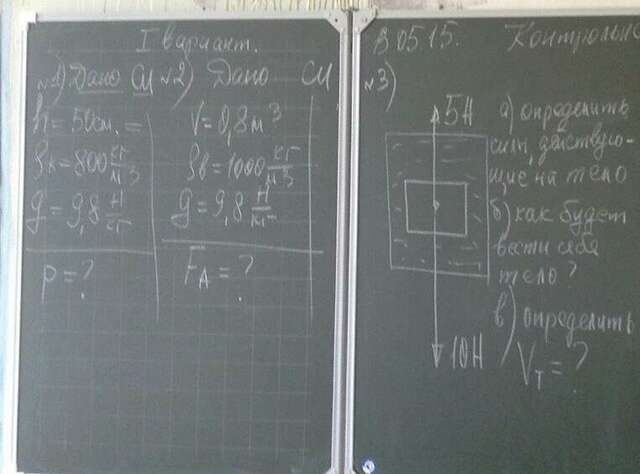 I вариант.
№1) Дано СИ
h = 50см. =
ρк = 800 кг/м3
g = 9,8 Н/кг
р = ?
№2) Дано СИ
V = 0,8 м3
ρв = 1000 кг/м3
g = 9,8 Н/кг
FА = ?
05.15. Контрольн
№3)
5Н
10Н
а) определить
силы, действую-
щие на тело
б) как будет
вести себя
тело?
в) определить
Vт = ?